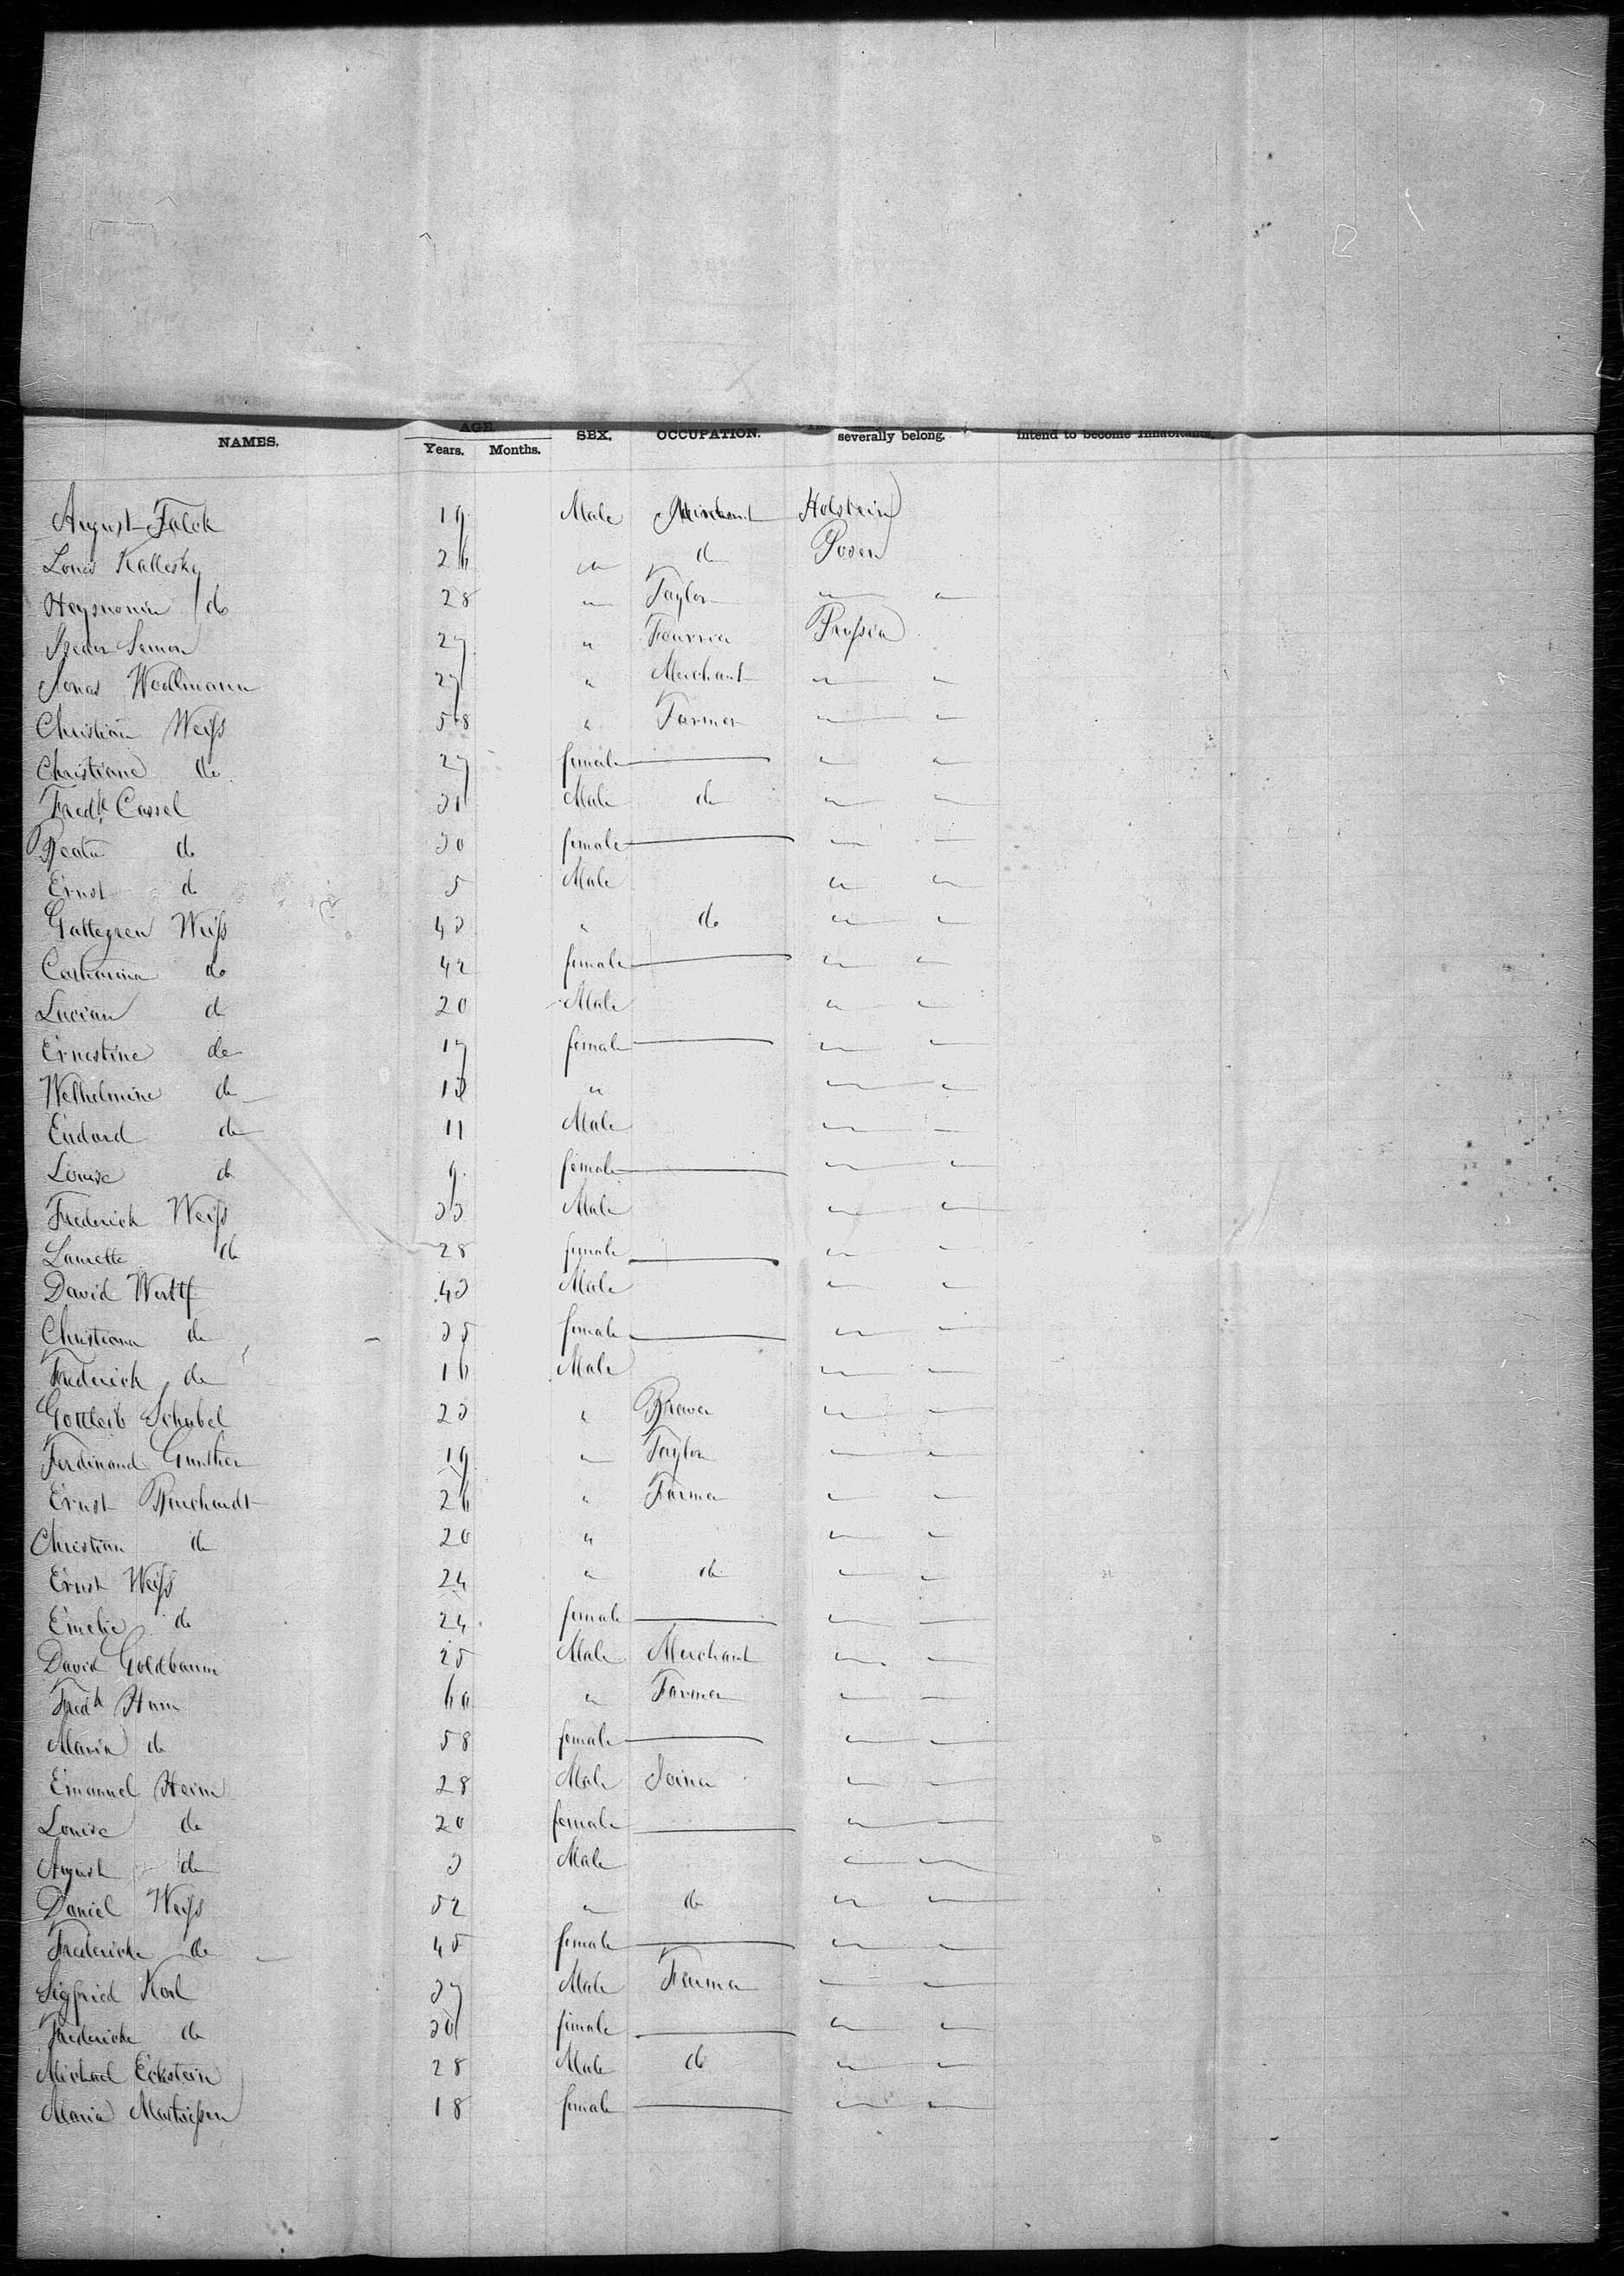 NAMES. AGE. Years. Months. SEX. OCCUPATION. severally belong. intend to become Inhabitants.
August Falck 19 Male Merchant Holstein
Louis Kallesky 26 " do Posen
Heysmonin do 28 " Taylor " "
Isedor Semon 27 " Prussia
Jonas Woollmann 27 " Merchant " "
Christian Weiss 58 " Farmer " "
Christiane do 27 female — " "
Fredk Cassel 31 Male do " "
Beata do 30 female — " "
Ernst do 5 Male " "
Weiss 43 " do " "
Catharina do 42 female — " "
Lucian do 20 Male " "
Ernestine do 17 female — " "
Welhelmine do 13 " " "
Eudard do 11 Male " "
Louise do 9 female — " "
Frederick Weiss 33 Male " "
Laurette do 28 female — " "
David 43 Male " "
Christiana do 35 female — " "
Frederick do 16 Male " "
Gottleib Schubel 23 " Brewer " "
Ferdinand Gunther 19 " Taylor " "
Ernst 26 " Farmer " "
Christian do 20 " " "
Ernst Weiss 24 " do " "
Emelie do 24 female — " "
David Goldbaum 25 Male Merchant " "
Fredk 60 " Farmer " "
Maria do 58 female — " "
Emanuel Heim 28 Male Joiner " "
Louise do 20 female — " "
August do 3 Male " "
Daniel Weiss 52 " do " "
Fredericke do 45 female — " "
Sigfried 37 Male Farmer " "
Fredericke do 30 female — " "
Michael Eckstein 28 Male do " "
Maria 18 female — " "